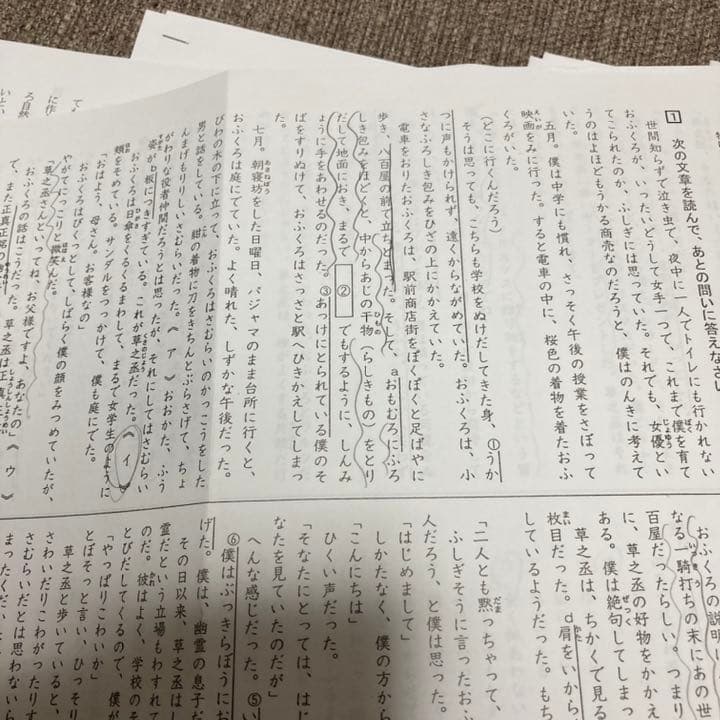 1 次の文章を読んで、あとの問いに答えなさ
世間知らずで泣き虫で、夜中に一人でトイレにも行かれない
おふくろが、いったいどうして女手一つで、これまで僕を育て
てこられたのか、ふしぎには思っていた。それでも、女優とい
うのはよほどもうかる商売なのだろうと、僕はのんきに考えて
いた。
五月。僕は中学にも慣れ、さっそく午後の授業をさぼって
映画をみに行った。すると電車の中に、桜色の着物を着たおふ
くろがいた。
(どこに行くんだろう)
そうは思っても、こちらも学校をぬけだしてきた身、①うか
つに声もかけられず、遠くからながめていた。おふくろは、小
さなふろしき包みをひざの上にかかえていた。
電車をおりたおふくろは、駅前商店街をぽくぽくと足ばやに
歩き、八百屋の前で立ちどまった。そして、aおもむろにふろ
しき包みをほどくと、中からあじの干物(らしきもの)をとり
だして地面におき、まるで ② でもするように、しんみ
ょうに手をあわせるのだった。③あっけにとられている僕のそ
ばをすりぬけて、おふくろはさっさと駅へひきかえしてしまっ
た。
七月。朝寝坊をした日曜日、パジャマのまま台所に行くと、
おふくろは庭にでていた。よく晴れた、しずかな午後だった。
びわの木の下に立って、おふくろはさむらいのかっこうをした
男と話をしている。紺の着物に刀をきちんとぶらさげて、ちょ
んまげもりりしいさむらいだった。《 ア 》おおかた、ふう
がわりな役者仲間だろうとは思ったが、それにしてはさむらい
姿がb板につきすぎている。これが草之丞だった。《 イ 》
おふくろは日傘をくるくるまわして、まるで女学生のように
頬をそめている。サンダルをつっかけて、僕も庭にでた。
「おはよう、母さん。お客様なの」
おふくろはびくっとして、しばらく僕の顔をみつめていたが、
やがてにっこりと微笑んだ。
「草之丞さんといってね、お父様ですよ、あなたの」《 ウ 》
おふくろの話はこうだった。草之丞は正真正
て、また正真正銘の
おふくろの説明に
なる一騎打ちの末にあの世
百屋だったらしい。つまり
に、草之丞の好物をかかえ
ある。僕は絶句してしまっ
草之丞は、ちかくで見る
枚目だった。d肩をいから
しているようだった。もち
「二人とも黙っちゃって、
ふしぎそうに言ったおふ
人だろう、と僕は思った。
「はじめまして」
しかたなく、僕の方から
「こんにちは」
ひくい声だった。
「そなたにとっては、はじ
なたを見ていたのだが」
へんな感じだった。⑤い
⑥僕はぶっきらぼうにお
げた。僕は、幽霊の息子だ
その日以来、草之丞はし
霊だという立場もわすれて
のだ。彼はよく、学校のそ
とびだしてくるので、僕が
「やっぱりこわいか」
とぼそっと言い、ひっそり
草之丞と歩いていると、
さわいだりこわがったりす
さむらいだとは思わない
まったくだい